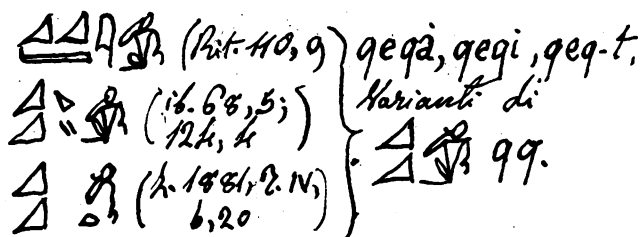 (Rit. 110, 9)
(ib. 68, 5;
124, 4)
(Z. 1881, T. IV,
b, 20)
qeqà, qeqi, qeq-t,
Varianti di
qq.